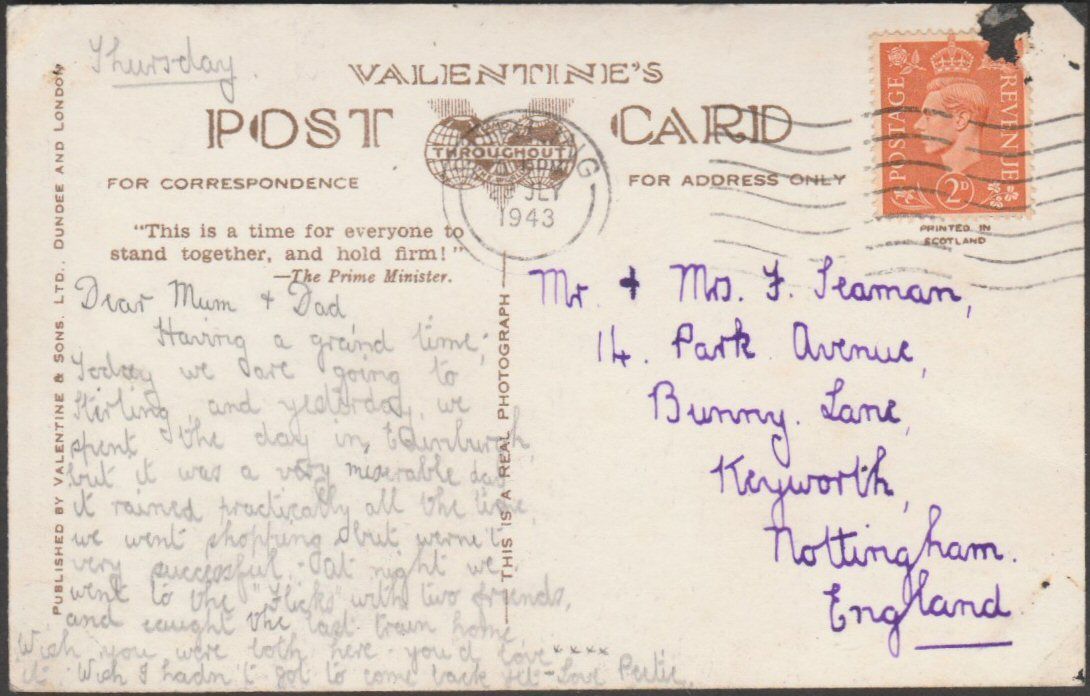 Thursday
VALENTINE'S
POST CARD
THROUGHOUT
FOR CORRESPONDENCE
FOR ADDRESS ONLY
JLY
1943
POSTAGE REVENUE
2D
PRINTED IN
SCOTLAND
"This is a time for everyone to
stand together, and hold firm!"
—The Prime Minister.
Dear Mum & Dad
Having a grand time,
Today we are going to
Stirling, and yesterday, we
spent the day in Edinburgh,
but it was a very miserable day
it rained practically all the time,
we went shopping but weren't
very successful. At night we
went to the "Flicks" with two friends,
and caught the last train home.
Wish you were both here - you'd love xxxx
it. Wish I hadn't got to come back yet - Love
Mr. & Mrs. F. Seaman,
14. Park Avenue,
Bunny. Lane,
Keyworth,
Nottingham.
England
PUBLISHED BY VALENTINE & SONS. LTD., DUNDEE AND LONDON
THIS IS A REAL PHOTOGRAPH